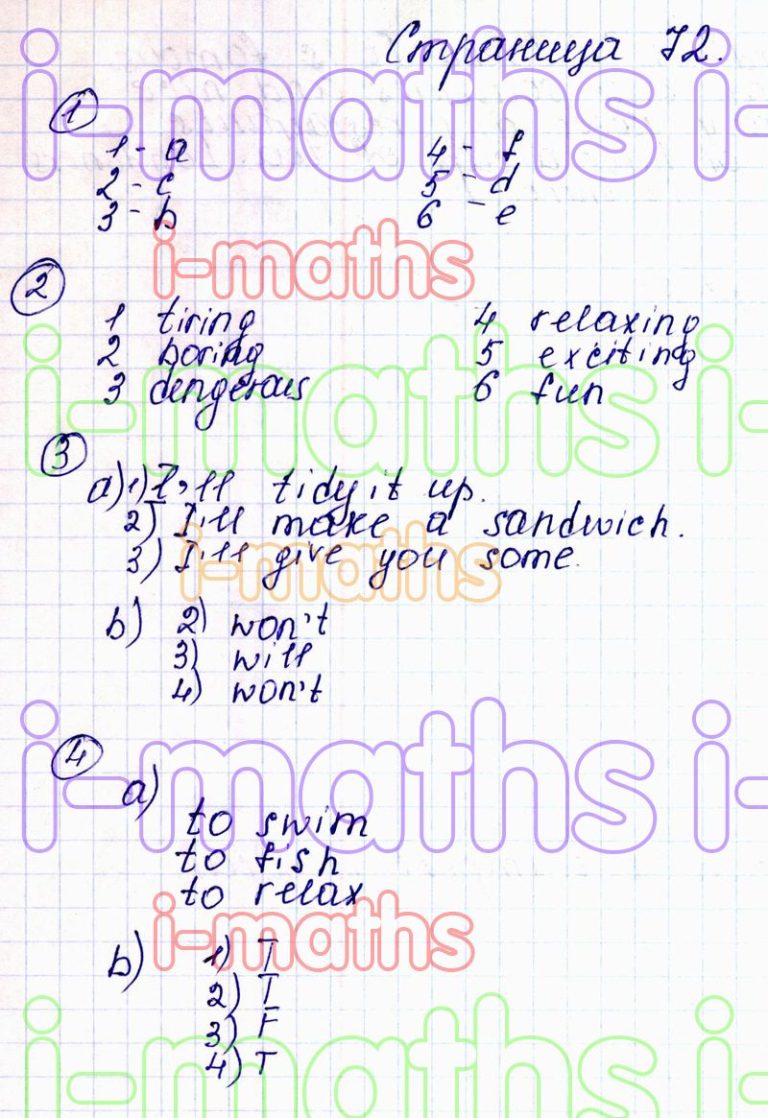 Страница 72.
1
1 - a 4 - f
2 - c 5 - d
3 - b 6 - e
2
1 tiring 4 relaxing
2 boring 5 exciting
3 dengerous 6 fun
3
a) 1) I'll tidy it up.
2) I'll make a sandwich.
3) I'll give you some.
b) 2) won't
3) will
4) won't
4
a)
to swim
to fish
to relax
b) 1) T
2) T
3) F
4) T
i-maths i-maths
i-maths
i-maths i-maths
i-maths
i-maths i-maths
i-maths
i-maths i-maths